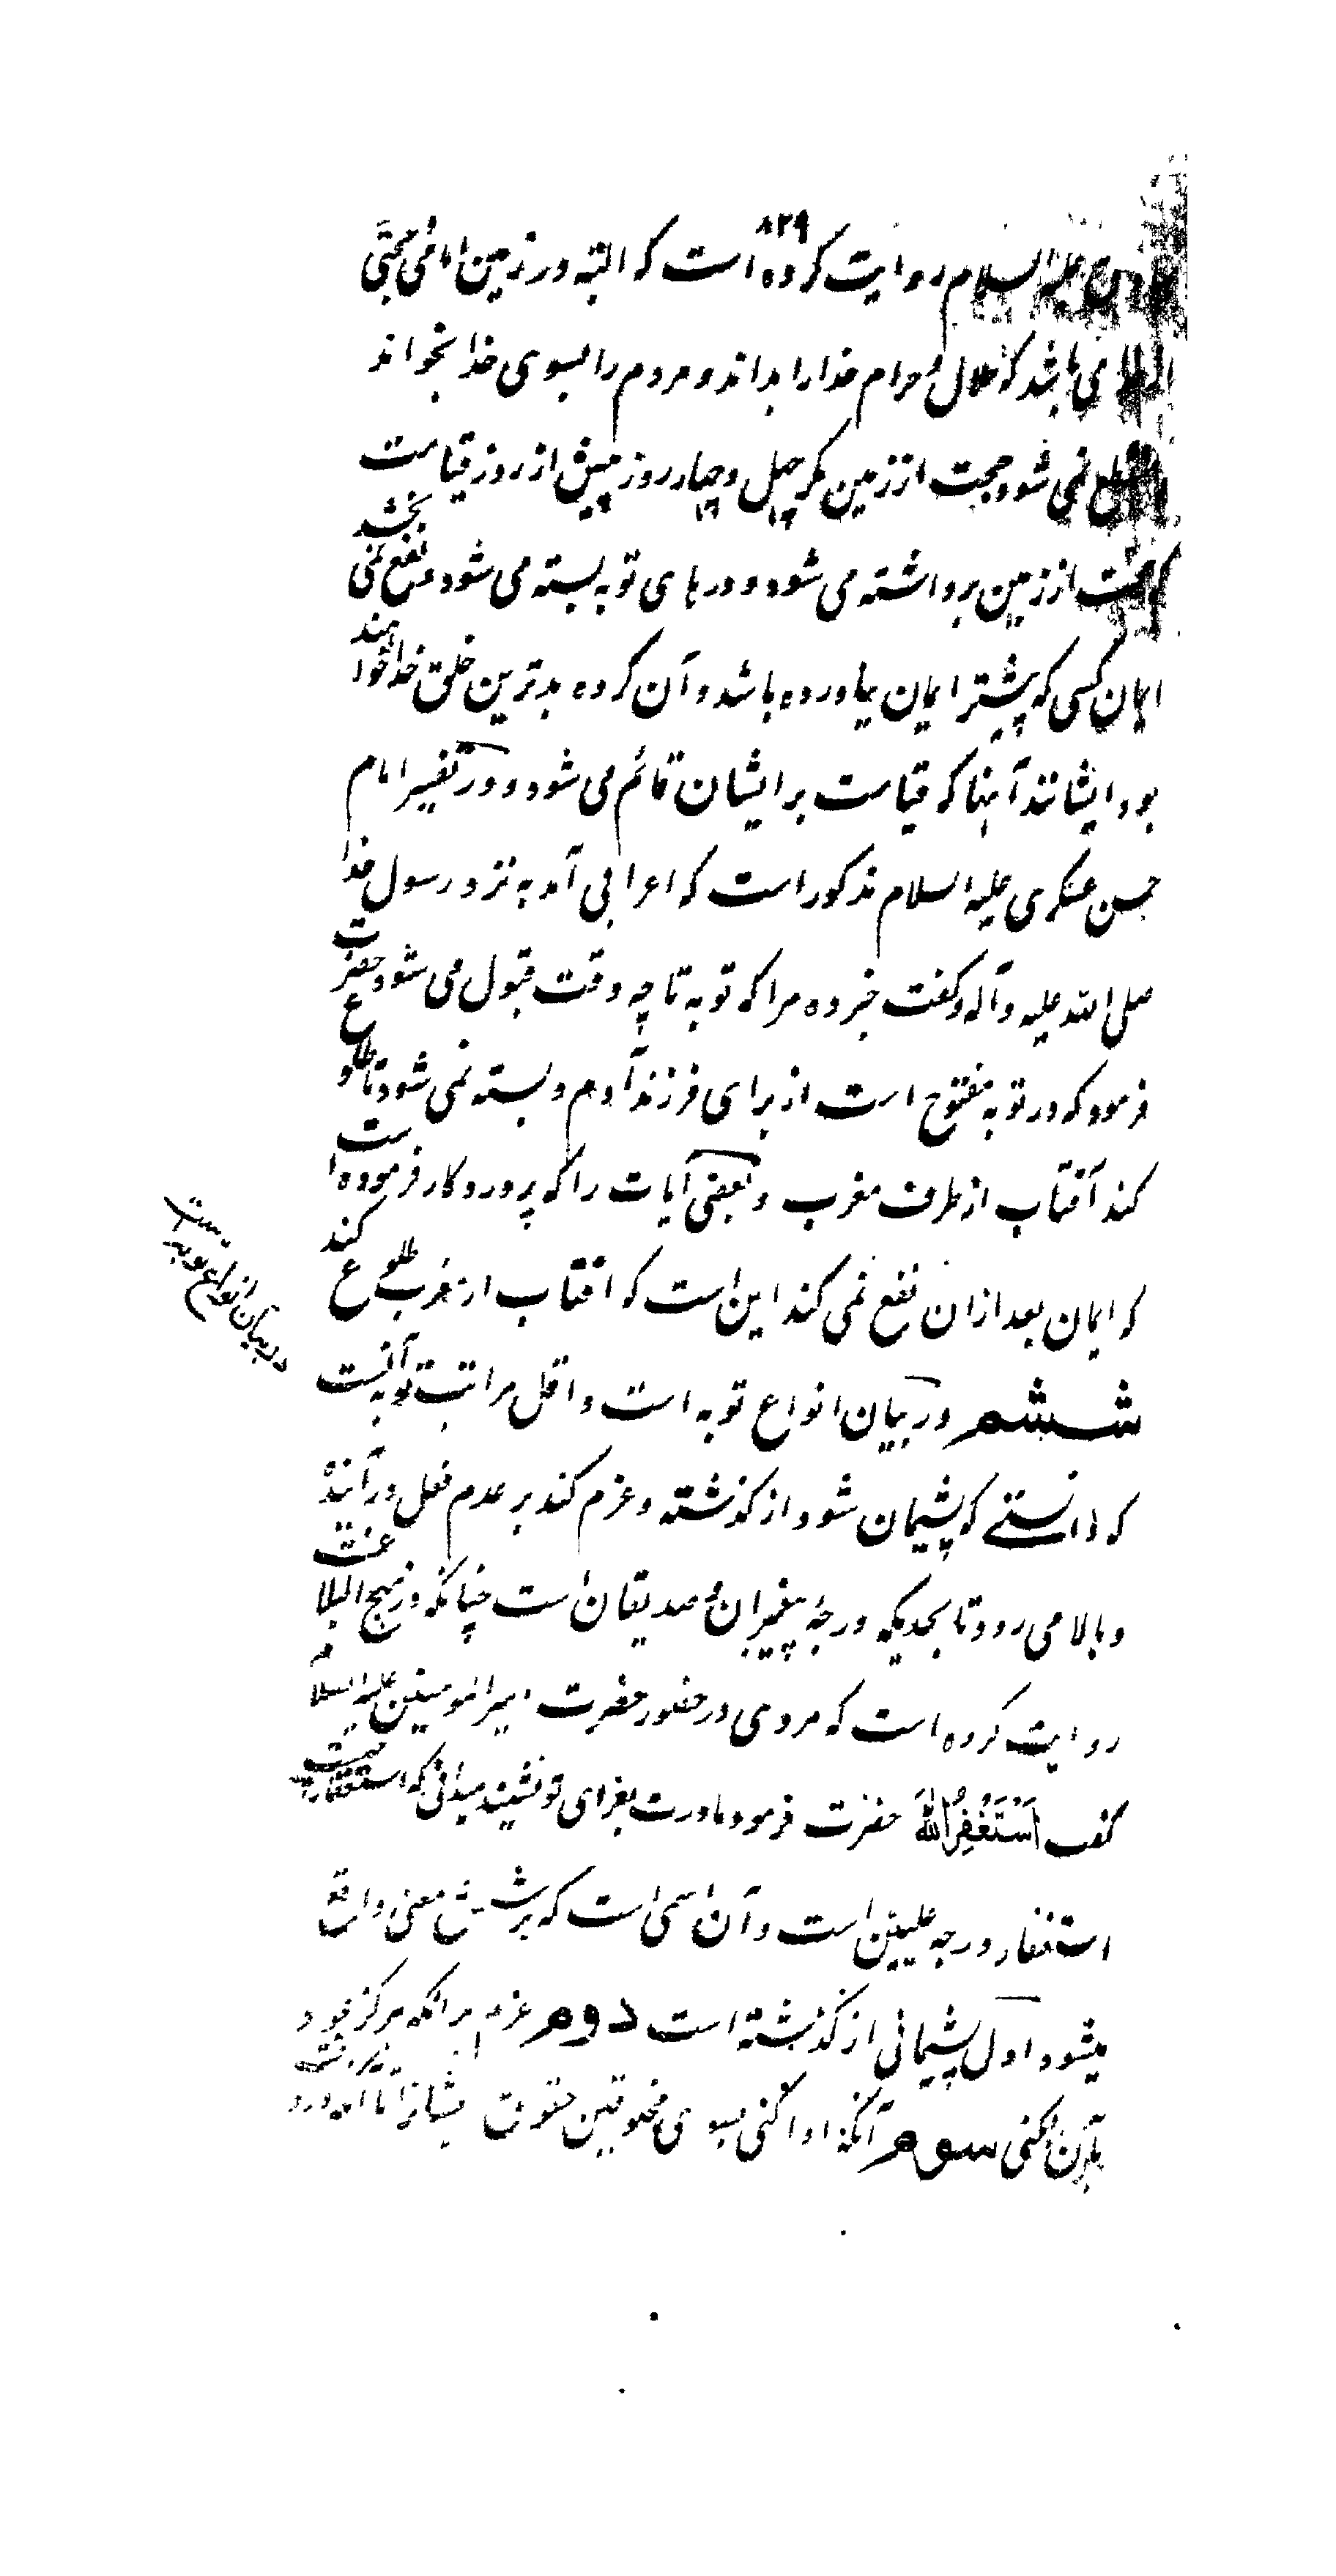 ۸۲۹
علیه السلام روایت کرده است که البته در زمین امامی حجتی
می باشد که حلال و حرام خدا را بداند و مردم را بسوی خدا بخواند
نمی شود حجت از زمین مگر چهل و چهار روز پیش از روز قیامت
حجت از زمین برداشته می شود و درهای توبه بسته می شود و نفع نمی بخشد
ایمان کسی که پیشتر ایمان نیاورده باشد و آن گروه بدترین خلق خدا خواهند
بود ایشانند آنها که قیامت بر ایشان قائم می شود و در تفسیر امام
حسن عسکری علیه السلام مذکور است که اعرابی آمد به نزد رسول خدا
صلی الله علیه و آله و گفت خبر ده مرا که توبه تا چه وقت قبول می شود حضرت
فرمود که در توبه مفتوح است از برای فرزند آدم و بسته نمی شود تا طلوع
کند آفتاب از طرف مغرب و بعضی آیات را که پروردگار فرموده است
که ایمان بعد ازان نفع نمی کند این است که آفتاب از مغرب طلوع کند
ششم در بیان انواع توبه است و اقل مراتب توبه آنست
که دانستے که پشیمان شود از گذشته و عزم کند بر عدم فعل در آینده
و بالا می رود تا بحدیکه درجهٔ پیغمبران و صدیقان است چنانکه در نهج البلاغت
روایت کرده است که مردی در حضور حضرت امیر المومنین علیه السلام
گفت اَسْتَغْفِرُ اللّٰهَ حضرت فرمود مادرت بعزای تو نشیند میدانی که استغفار چیست
استغفار درجه علیین است و آن اسمی است که بر شش معنی واقع
میشود اول پشیمانی از گذشته است دوم عزم بر آنکه هرگز عود
بآن نکنی سوم آنکه ادا کنی بسوی مخلوقین حقوق ایشانرا تا
در بیان انواع توبه است